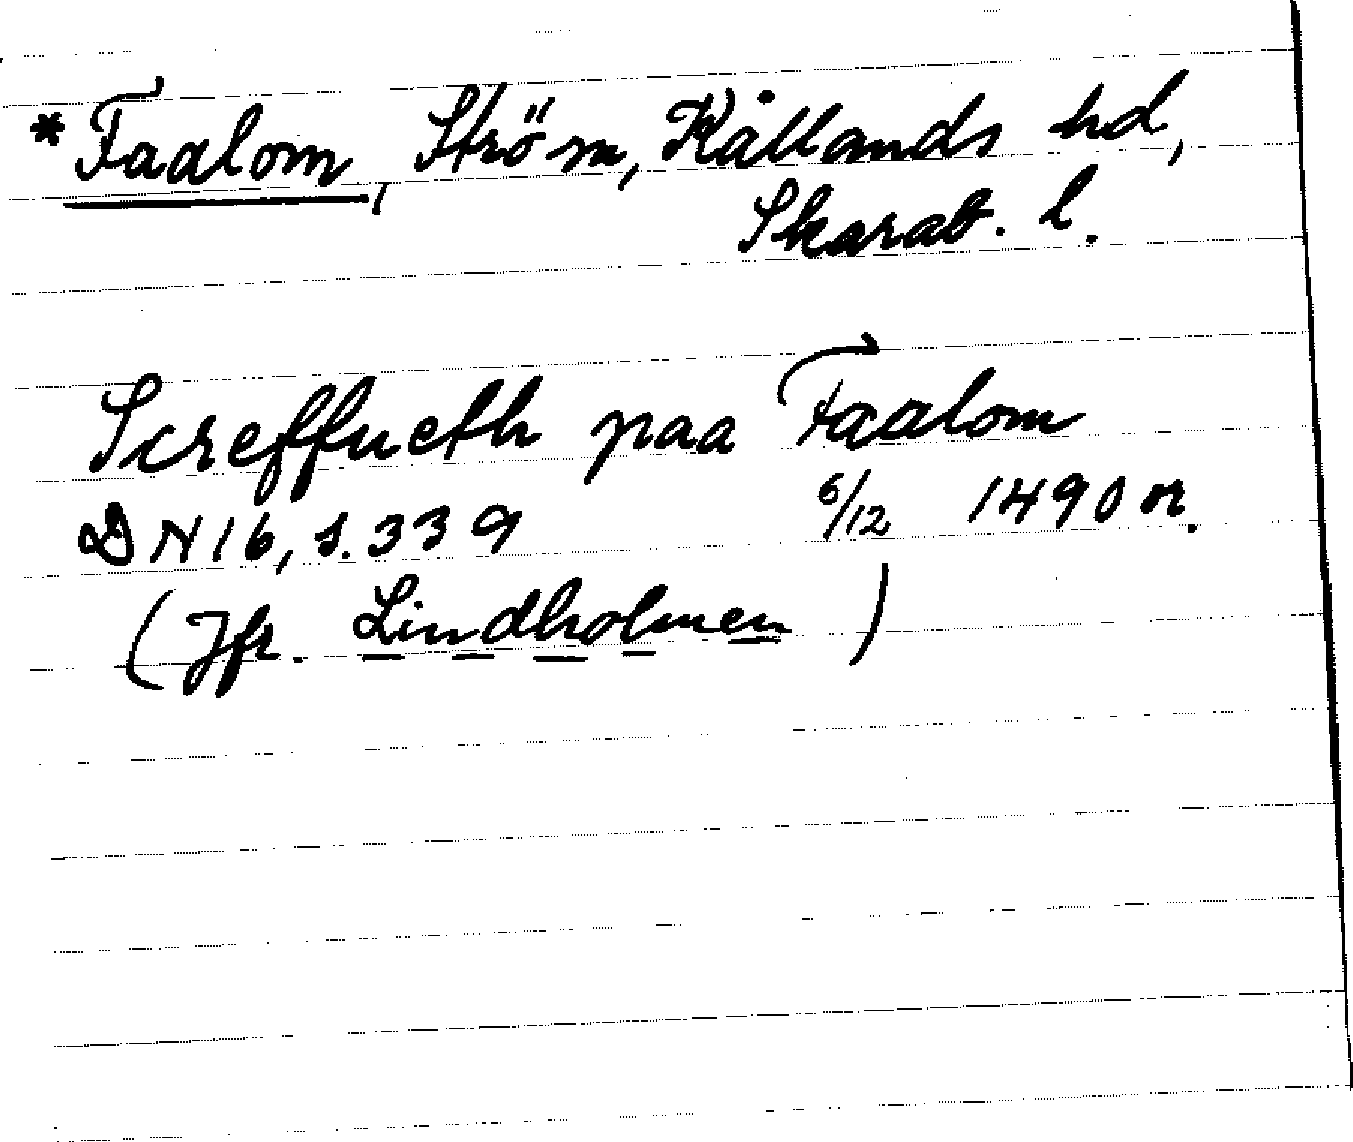 *Faalom, Ström, Kållands hd,
Skarab. l.
Screffueth paa Faalom
DN 16, s. 339 6/12 1490 or.
(Jfr. Lindholmen)